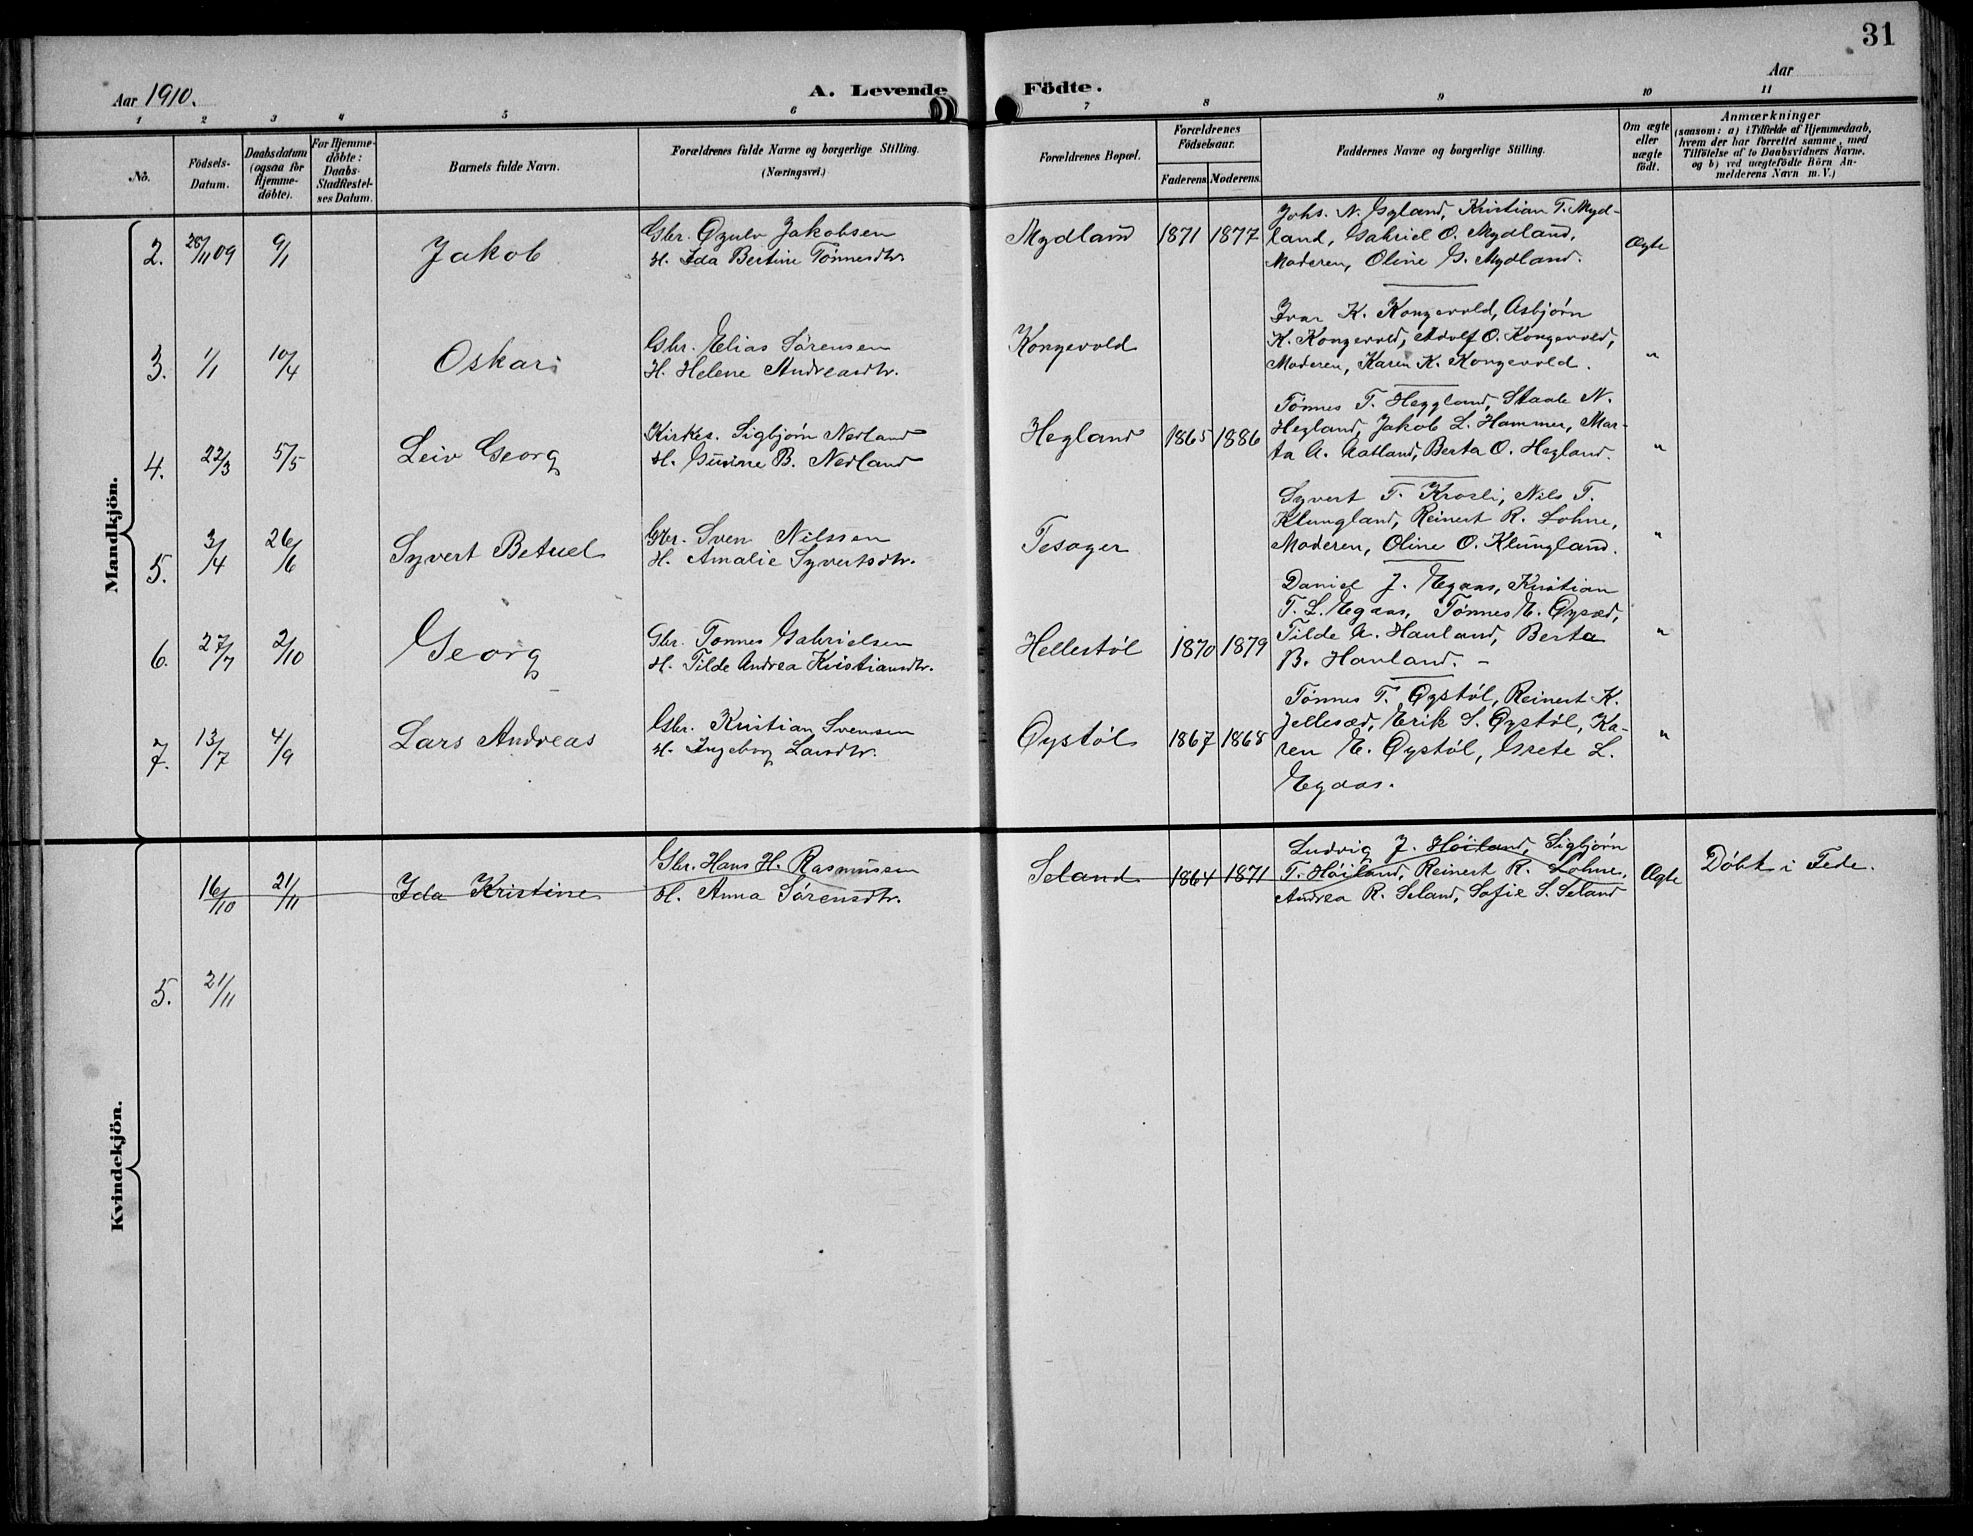 31
Aar 1910.
A. Levende
Födte.
Aar
1 2 3 4 5 6 7 8 9 10 11
No.
Födsels-
Datum.
Daabsdatum
(ogsaa for
Hjemme-
döbte).
For Hjemme-
döbte:
Daabs-
Stadfæstel-
ses Datum.
Barnets fulde Navn.
Forældrenes fulde Navne og borgerlige Stilling.
(Næringsvei.)
Forældrenes Bopæl.
Forældrenes
Födselsaar.
Faderens. Moderens.
Faddernes Navne og borgerlige Stilling.
Om ægte
eller
uægte
födt.
Anmærkninger
(saasom: a) i Tilfælde af Hjemmedaab,
hvem der har forrettet samme, med
Tilföielse af to Daabsvidners Navne,
og b) ved uægtefödte Börn An-
melderens Navn m. V.)
Mandkjön.
2. 28/11 09 9/1 Jakob
Gbr. Øzulv Jakobsen
H. Ida Bertine Tönnesdtr.
Mydland 1871 1877
Johs. N. Gyland, Kristian T. Myd-
land, Gabriel O. Mydland,
Moderen, Oline G. Mydland.
Ægte
3. 1/1 10/4 Oskar
Gbr. Elias Sörensen
H. Helene Andreasdtr.
Kongevold
Ivar K. Kongevold, Asbjörn
K. Kongevold, Adolf O. Kongevold,
Moderen, Karen K. Kongevold.
"
4. 22/3 5/5 Leiv Georg
Kirkes. Sigbjörn Nedland
H. Gurine B. Nedland
Hegland 1865 1886
Tönnes T. Heggland, Staale N.
Hegland, Jakob L. Hammer, Mar-
ta A. Aatland, Berta O. Hegland.
"
5. 3/4 26/6 Syvert Betuel
Gbr. Sven Nilssen
H. Amalie Syvertsdtr.
Tesager
Syvert T. Krosli, Nils T.
Klungland, Reinert R. Lohne,
Moderen, Oline O. Klungland.
"
6. 27/7 2/10 Georg
Gbr. Tönnes Gabrielsen
H. Tilde Andrea Kristiansdtr.
Hellestöl 1870 1879
Daniel J. Egaas, Kristian
T. L. Egaas, Tönnes E. Öysæd,
Tilde A. Hauland, Berta
B. Hauland. -
"
7. 13/7 4/9 Lars Andreas
Gbr. Kristian Svensen
H. Ingeborg Larsdtr.
Öystöl 1867 1868
Tönnes T. Öystöl, Reinert K.
Jellesæd, Erik S. Öystöl, Ka-
ren E. Öystöl, Grete L.
Egaas.
"
Kvindekjön.
16/10 21/11 Ida Kristine
Gbr. Hans H. Rasmussen
H. Anna Sörensdtr.
Seland 1864 1871
Ludvig J. Höiland, Sigbjörn
T. Höiland, Reinert R. Lohne,
Andrea R. Seland, Sofie S. Seland
Ægte
Döbt i Fede.
5. 21/11